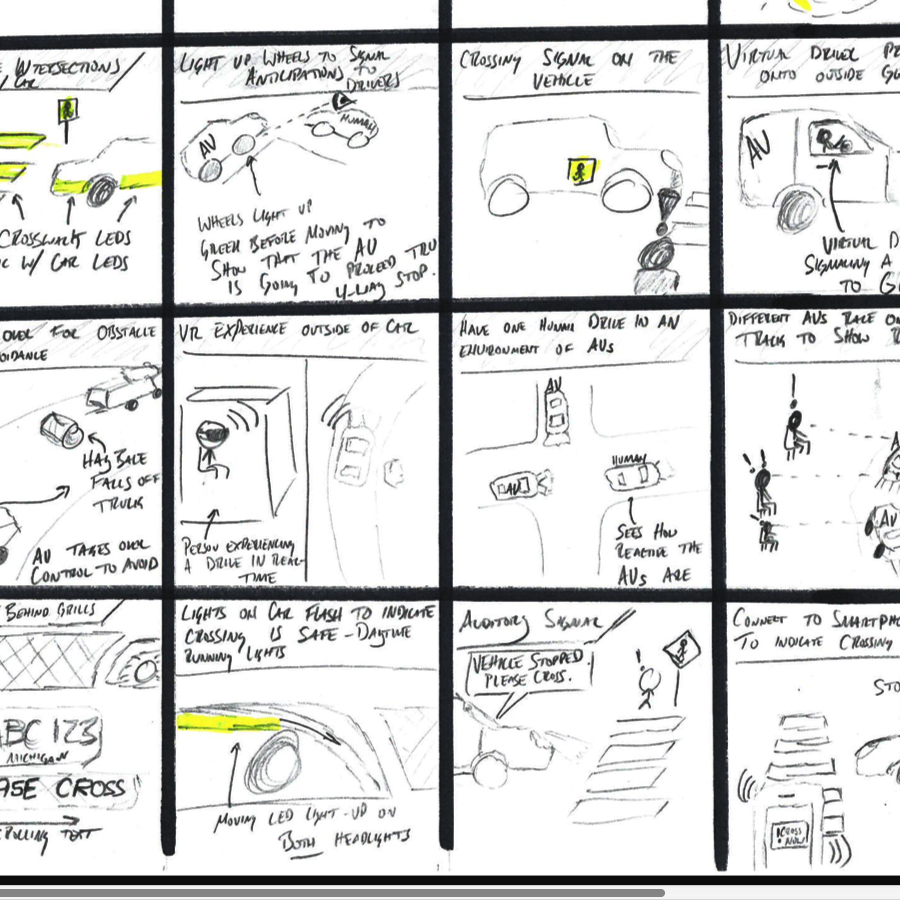 INTERSECTIONS
W/ CAR
CROSSWALK LEDS
W/ CAR LEDS
LIGHT UP WHEELS TO SIGNAL
ANTICIPATIONS TO
DRIVERS
AV
HUMAN
WHEELS LIGHT UP
GREEN BEFORE MOVING TO
SHOW THAT THE AV
IS GOING TO PROCEED THRU
4-WAY STOP.
CROSSING SIGNAL ON THE
VEHICLE
VIRTUAL DRIVER PR
ONTO OUTSIDE
AV
VIRTUAL D
SIGNALING A
TO G
OVER FOR OBSTACLE
OIDANCE
HAY BALE
FALLS OFF
TRUCK
AV TAKES OVER
CONTROL TO AVOID
VR EXPERIENCE OUTSIDE OF CAR
PERSON EXPERIENCING
A DRIVE IN REAL-
TIME
HAVE ONE HUMAN DRIVE IN AN
ENVIRONMENT OF AVS
AV
AV
HUMAN
SEES HOW
REACTIVE THE
AVS ARE
DIFFERENT AVS RACE ON
TRACK TO SHOW R
! !! !
A
AV
BEHIND GRILLS
ABC 123
MICHIGAN
ASE CROSS
SCROLLING TEXT
LIGHTS ON CAR FLASH TO INDICATE
CROSSING IS SAFE - DAYTIME
RUNNING LIGHTS
MOVING LED LIGHT-UP ON
BOTH HEADLIGHTS
AUDITORY SIGNAL
VEHICLE STOPPED.
PLEASE CROSS.
!
CONNECT TO SMARTPHO
TO INDICATE CROSSING
STO
CROSS
NOW